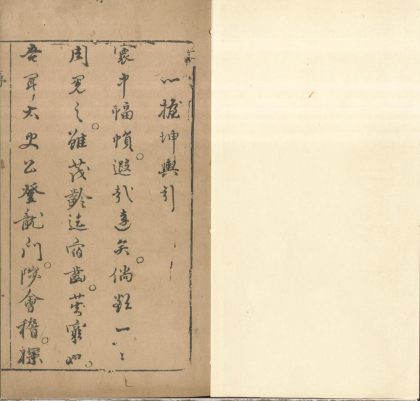 一握坤輿引
寰中幅幀。遐哉邈矣。倘欲一二
周覓之。雖茂齡迄宿齒。莫窮也。
吾聞太史公登龍門。陟會稽。探